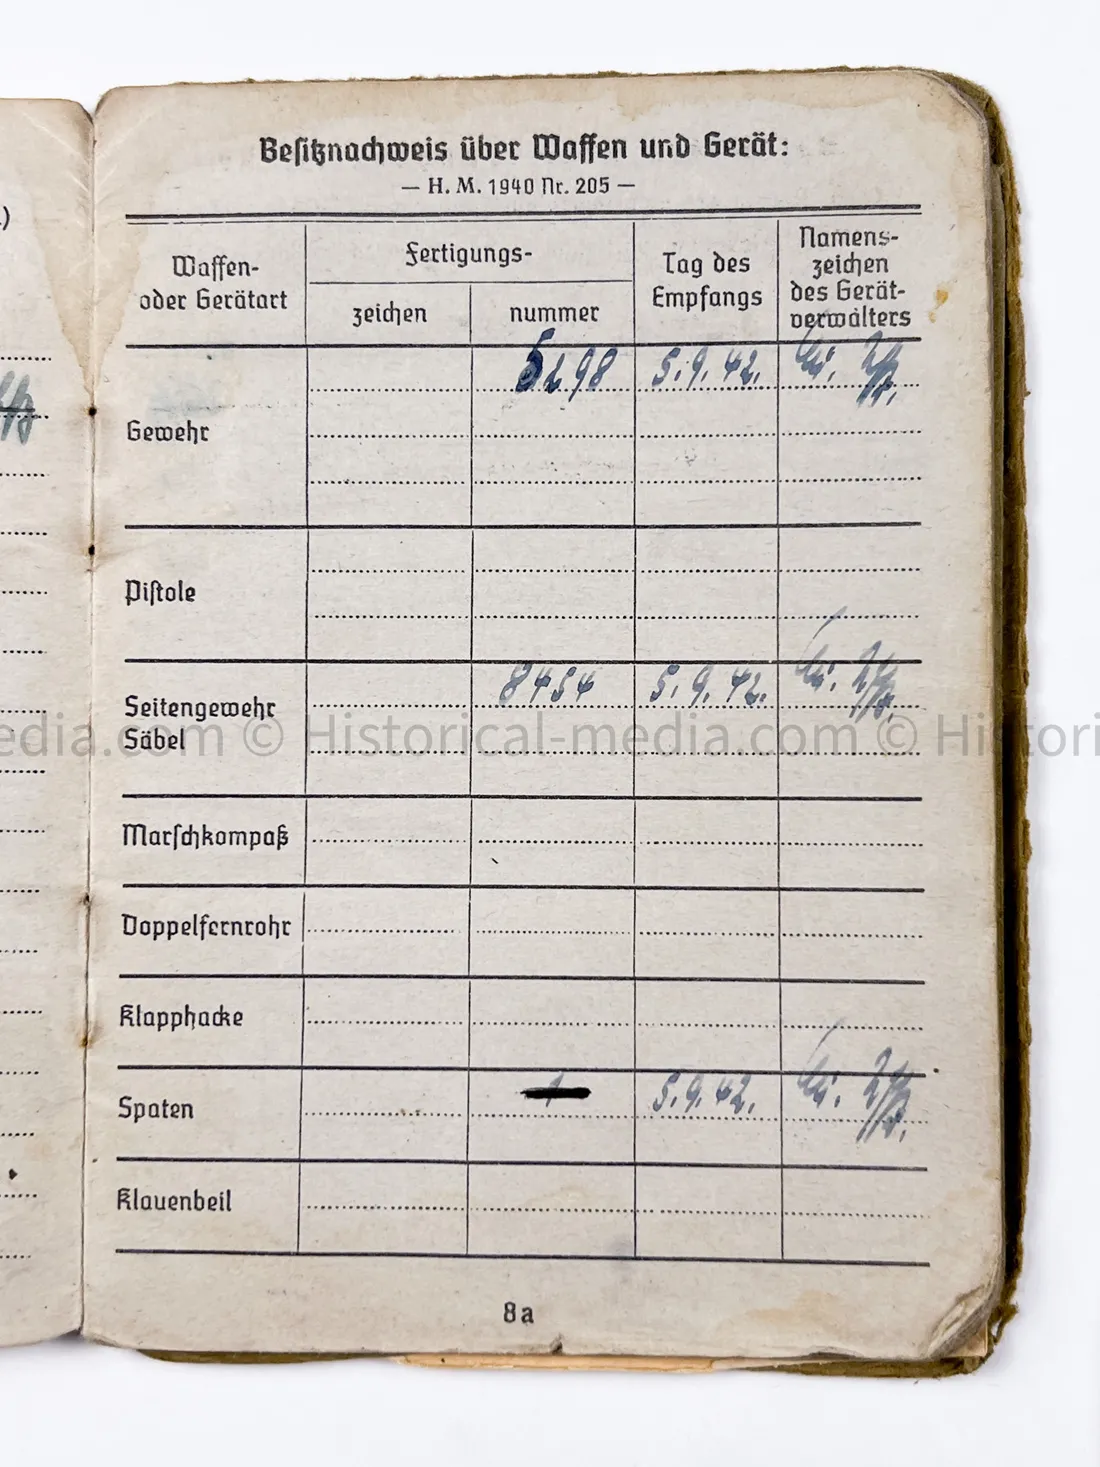 Besitznachweis über Waffen und Gerät:
— H. M. 1940 Nr. 205 —
Waffen-
oder Gerätart
Fertigungs-
zeichen
nummer
Tag des
Empfangs
Namens-
zeichen
des Gerät-
verwalters
Gewehr
5298 5.9.42.
Pistole
Seitengewehr
Säbel
8454 5.9.42.
Marschkompaß
Doppelfernrohr
Klapphacke
Spaten
1 5.9.42.
Klauenbeil
8a
edia.com © Historical-media.com © Histori